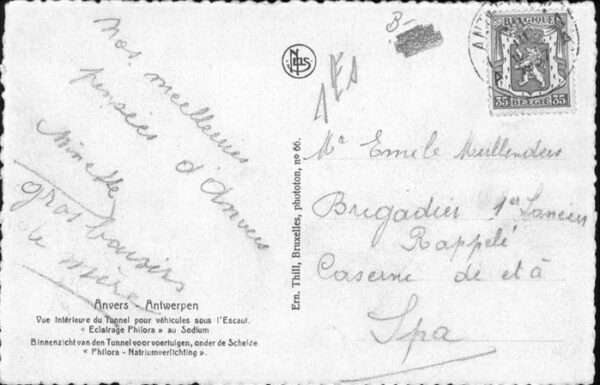 nos meilleures
pensées d'Anvers
Minette
gros baisers
de mère
Anvers - Antwerpen
Vue intérieure du Tunnel pour véhicules sous l'Escaut.
« Eclairage Philora » au Sodium
Binnenzicht van den Tunnel voor voertuigen, onder de Schelde
« Philora - Natriumverlichting ».
Ern. Thill, Bruxelles, phototon, nº 66.
B-
BELGIQUE
35 BELGIË 35
Mr Emile Meullenders
Brigadier 1er Lancier
Rappelé
Caserne de
Spa